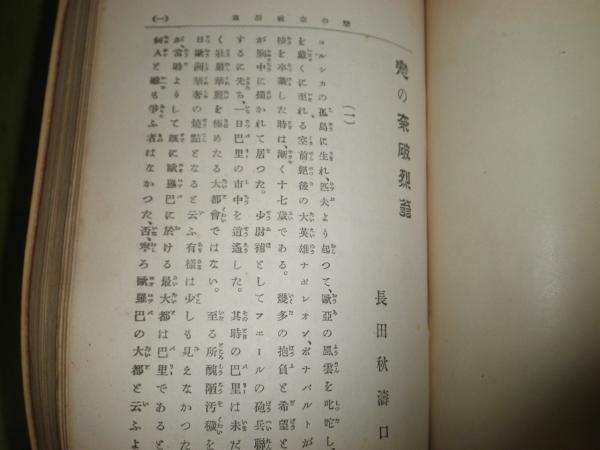 戀の奈破烈翁
長田秋濤口
(一)
コルシカの孤島に生れ、匹夫より起つて、歐亞の風雲を叱咤し、
を戴くに至れる空前絶後の大英雄ナポレオン、ボナパルトが
校を卒業した時は、漸く十七歳である。幾多の抱負と希望と
が胸中に描かれて居つた。少尉補としてフエールの砲兵聯
するに先ち、一日巴里の市中を逍遥した。其時の巴里は未だ
く壯嚴華麗を極めたる大都會ではない。至る所醜陋汚穢を
日歐洲華奢の燒點となると云ふ有樣は少しも見えなかつた
が、當時よりして既に歐羅巴に於ける最大都は巴里であると
何人と雖も爭ふ者はなかつた、否、寧ろ歐羅巴の大都と云ふよ
(一)